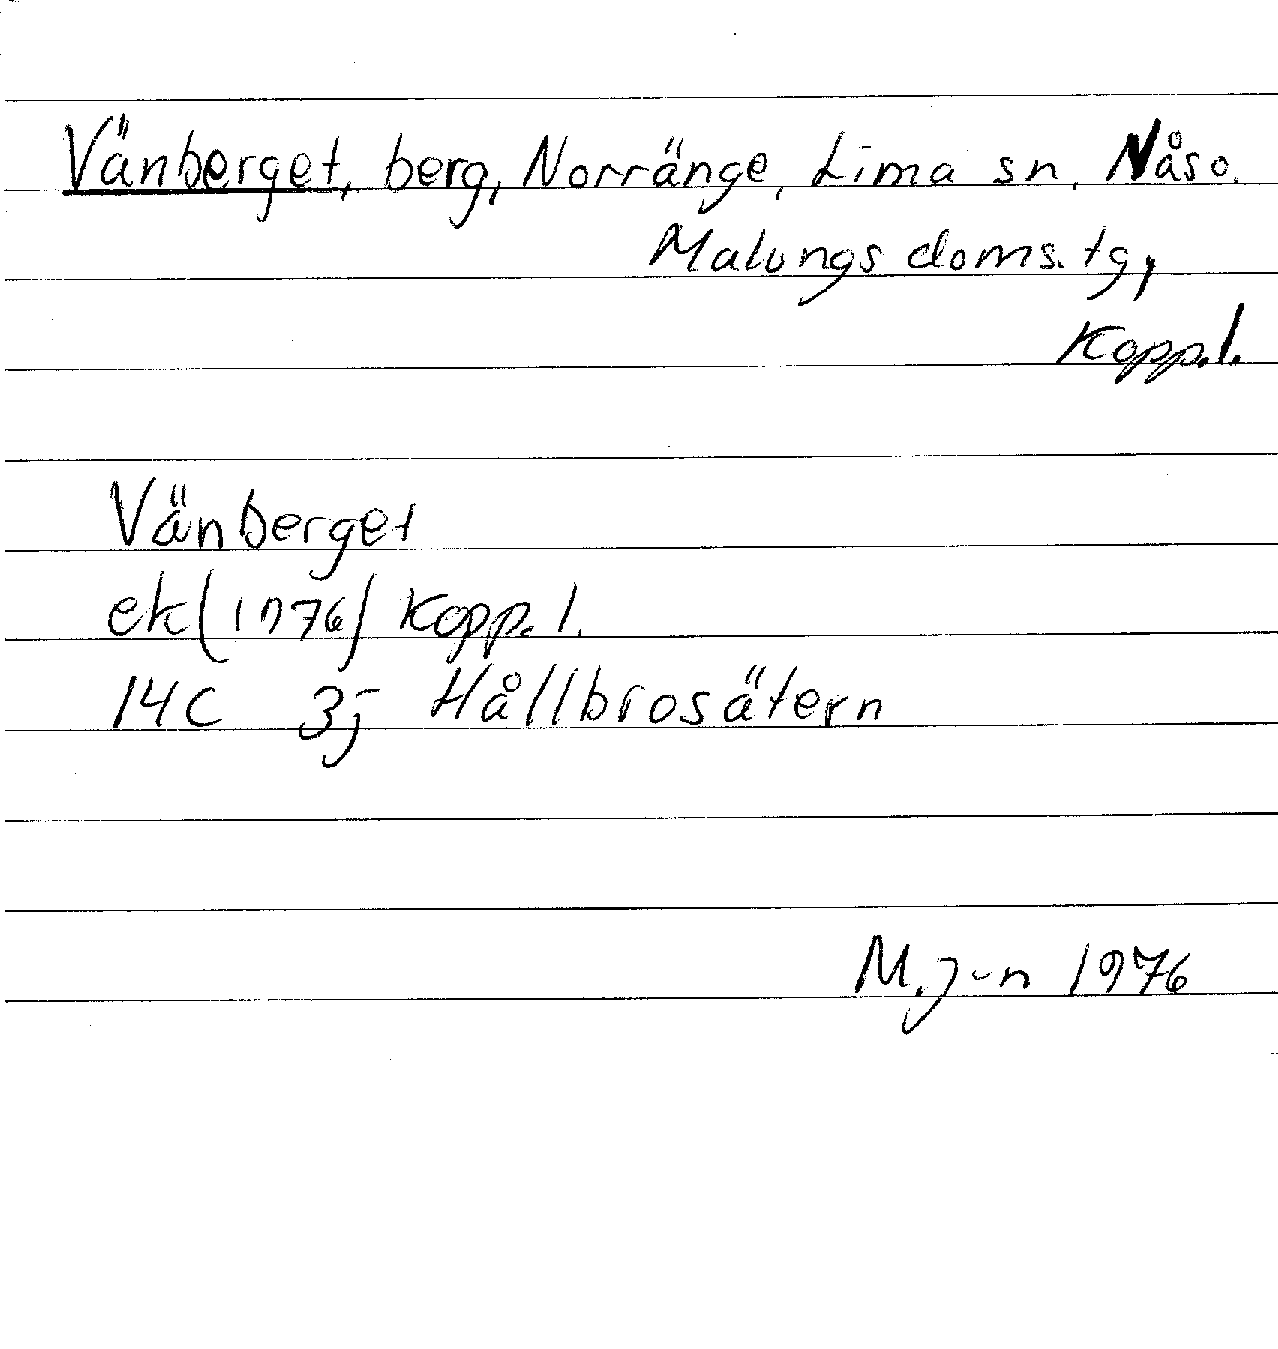 Vänberget, berg, Norränge, Lima sn, Nås o.
Malungs doms. tg,
Kopp. l.
Vänberget
ek (1976) Kopp. l.
14C 3j Hållbrosätern
M. J-n 1976